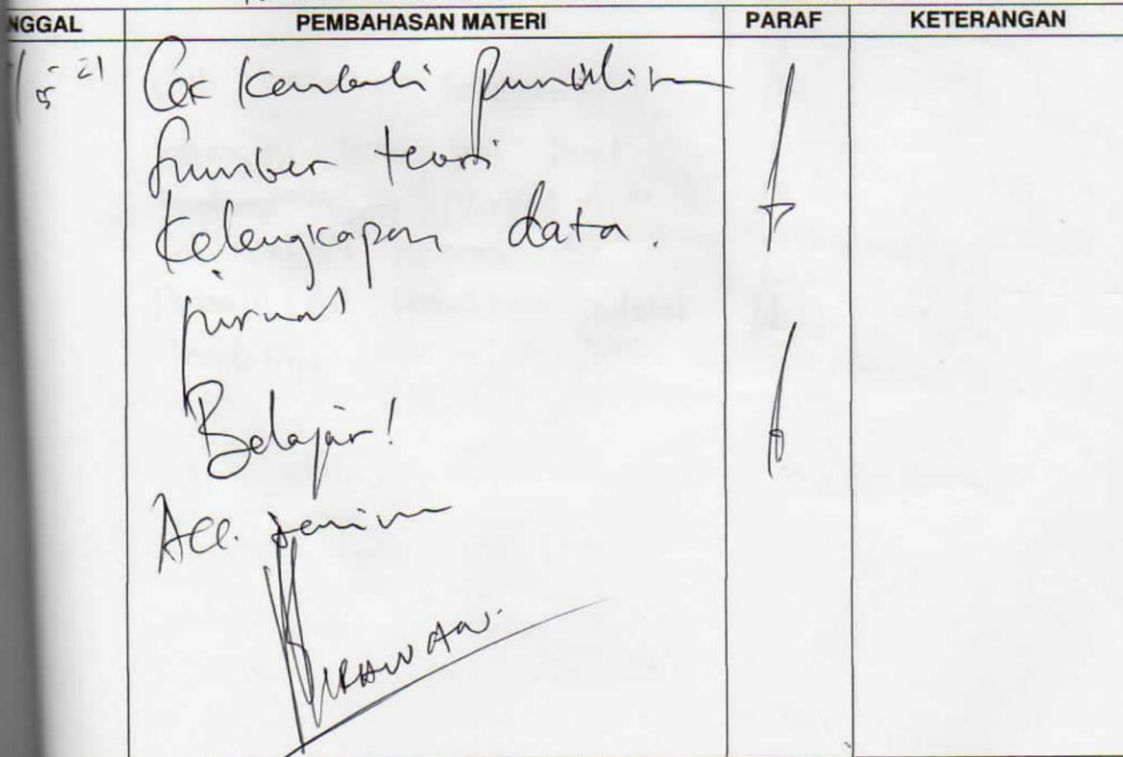 NGGAL PEMBAHASAN MATERI PARAF KETERANGAN
5 21 Cek kembali penulisan
Sumber teori
Kelengkapan data.
jurnal
Belajar!
Acc.